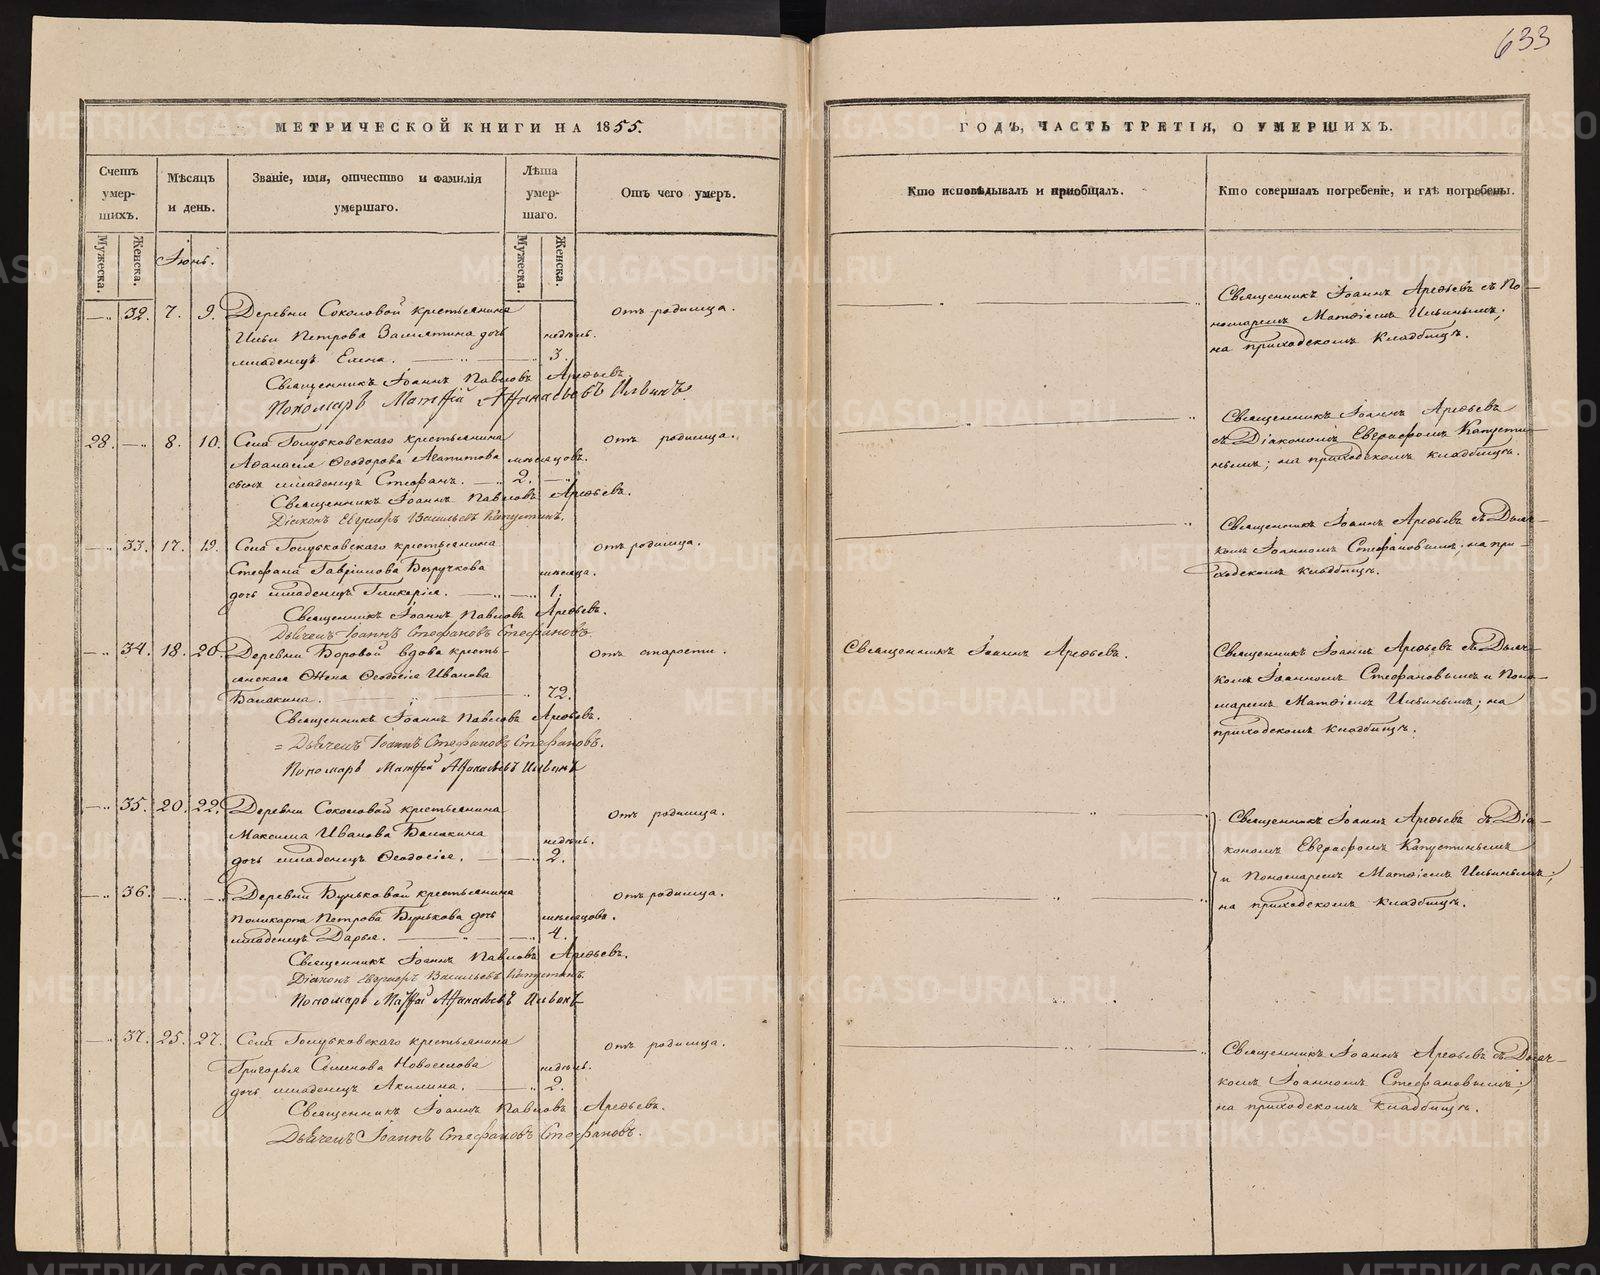 633
МЕТРИЧЕСКОЙ КНИГИ НА 1855.
ГОДЪ, ЧАСТЬ ТРЕТІЯ, О УМЕРШИХЪ.
Счетъ умер-шихъ.
Мѣсяцъ и день.
Званіе, имя, отчество и фамилія умершаго.
Лѣта умер-шаго.
Отъ чего умеръ.
Кто исповѣдывалъ и пріобщалъ.
Кто совершалъ погребеніе, и гдѣ погребены.
Мужеска.
Женска.
Іюнь.
Мужеска.
Женска.
32. 7. 9. Деревни Соколовой крестьянина
Ильи Петрова Замятина дочь недѣль.
младенецъ Елена. 3.
отъ родимца.
Священникъ Іоаннъ Арефьевъ съ По-
номаремъ Матѳіемъ Ильинымъ;
на приходскомъ кладбищѣ.
Священникъ Іоаннъ Павловъ Арефьевъ.
Пономарь Матѳій Аѳанасьевъ Ильинъ
28. 8. 10. Села Голубковскаго крестьянина
Аѳанасія Ѳеодорова Агапитова мѣсяцовъ.
сынъ младенецъ Стефанъ. 2.
отъ родимца.
Священникъ Іоаннъ Арефьевъ
съ Діакономъ Евграфомъ Капусти-
нымъ; на приходскомъ кладбищѣ.
Священникъ Іоаннъ Павловъ Арефьевъ.
Діаконъ Евграфъ Васильевъ Капустинъ.
33. 17. 19. Села Голубковскаго крестьянина
Стефана Гаврілова Безручкова мѣсяца.
дочь младенецъ Гликерія. 1.
отъ родимца.
Священникъ Іоаннъ Арефьевъ съ Дьяч-
комъ Іоанномъ Стефановымъ; на при-
ходскомъ кладбищѣ.
Священникъ Іоаннъ Павловъ Арефьевъ.
Дьячекъ Іоаннъ Стефановъ Стефановъ.
34. 18. 20. Деревни Боровой вдова кресть-
янская жена Ѳеодосія Иванова
Балакина. 72.
отъ старости.
Священникъ Іоаннъ Арефьевъ.
Священникъ Іоаннъ Арефьевъ съ Дьяч-
комъ Іоанномъ Стефановымъ и Поно-
маремъ Матѳіемъ Ильинымъ; на
приходскомъ кладбищѣ.
Священникъ Іоаннъ Павловъ Арефьевъ.
= Дьячекъ Іоаннъ Стефановъ Стефановъ.
Пономарь Матѳій Аѳанасьевъ Ильинъ
35. 20. 22. Деревни Соколовой крестьянина
Максима Иванова Балакина недѣль.
дочь младенецъ Ѳеодосія. 2.
отъ родимца.
Священникъ Іоаннъ Арефьевъ съ Діа-
кономъ Евграфомъ Капустинымъ
и Пономаремъ Матѳіемъ Ильинымъ;
на приходскомъ кладбищѣ.
36. Деревни Буньковой крестьянина
Поликарпа Петрова Бунькова дочь мѣсяцовъ.
младенецъ Дарья. 4.
отъ родимца.
Священникъ Іоаннъ Павловъ Арефьевъ.
Діаконъ Евграфъ Васильевъ Капустинъ.
Пономарь Матѳій Аѳанасьевъ Ильинъ
37. 25. 27. Села Голубковскаго крестьянина
Григорья Семенова Новоселова недѣль.
дочь младенецъ Акилина. 2.
отъ родимца.
Священникъ Іоаннъ Арефьевъ съ Дьяч-
комъ Іоанномъ Стефановымъ;
на приходскомъ кладбищѣ.
Священникъ Іоаннъ Павловъ Арефьевъ.
Дьячекъ Іоаннъ Стефановъ Стефановъ.
METRIKI.GASO-URAL.RU